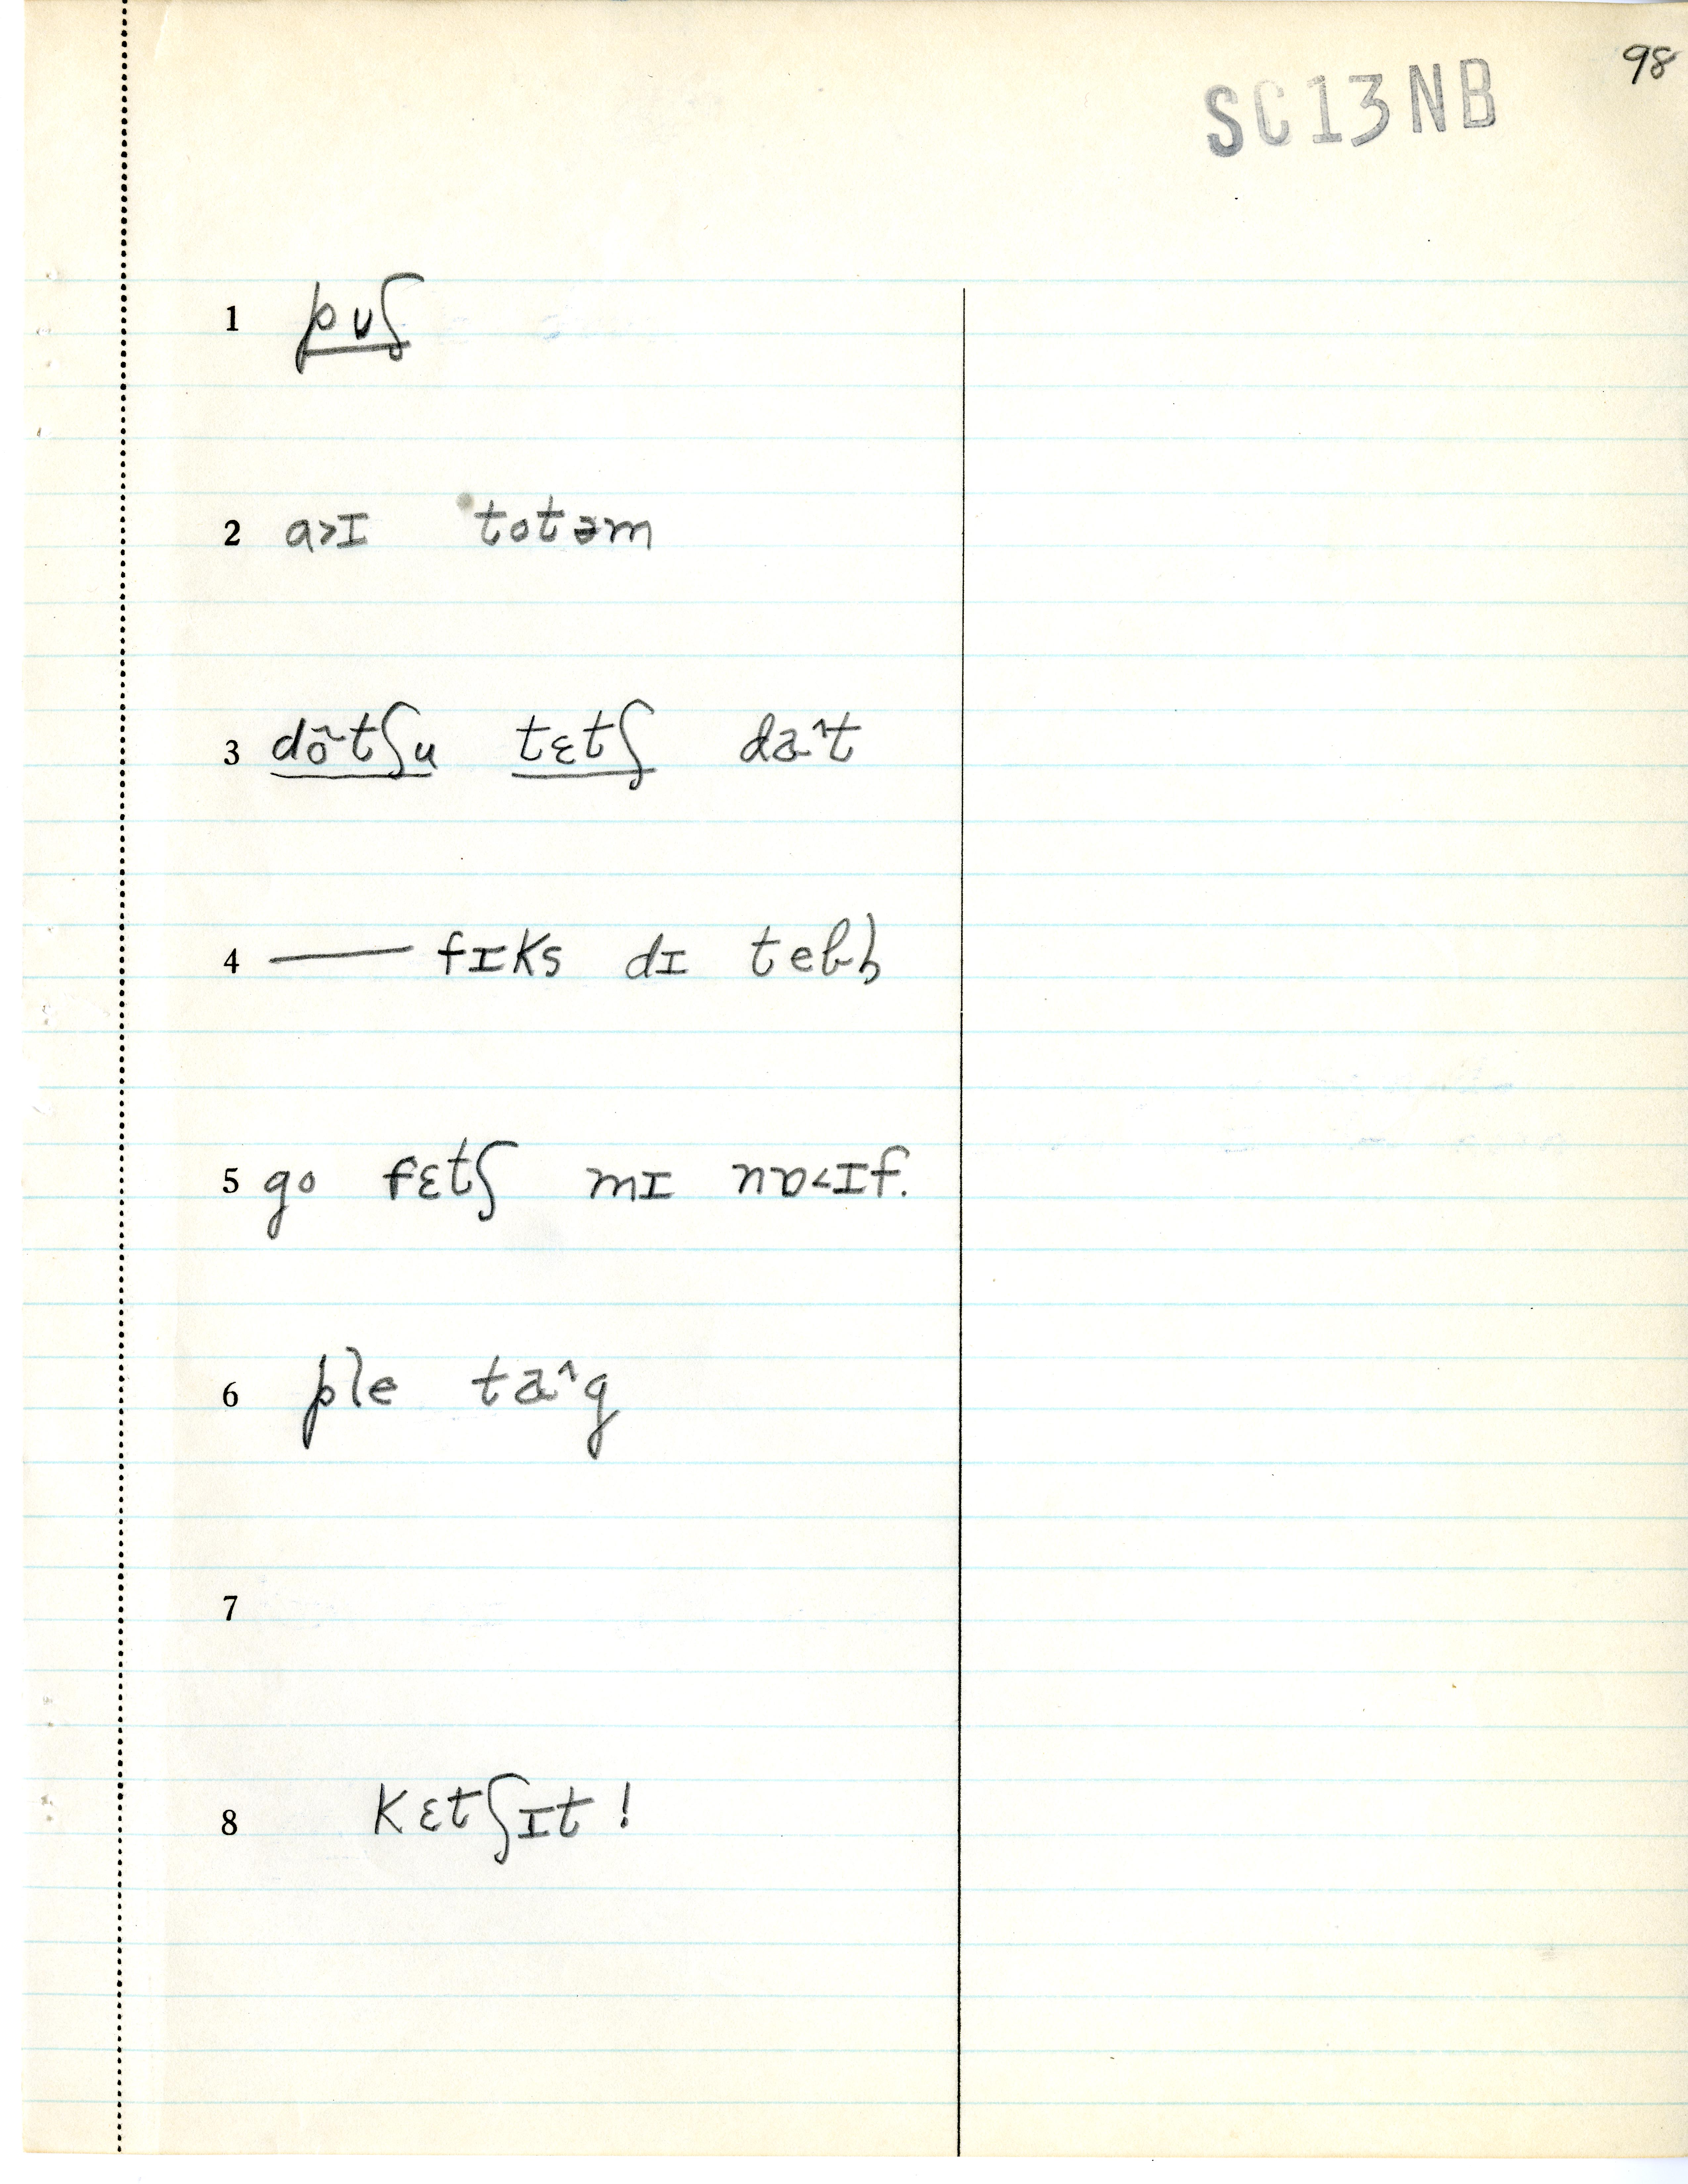 98
SC13NB
1 pʊʃ
2 a>ɪ totəm
3 dõtʃu tɛtʃ da^t
4 — fɪks dɪ tebḷ
5 go fɛtʃ mɪ nɒ<ɪf.
6 ple ta^g
7
8 kɛtʃɪt !